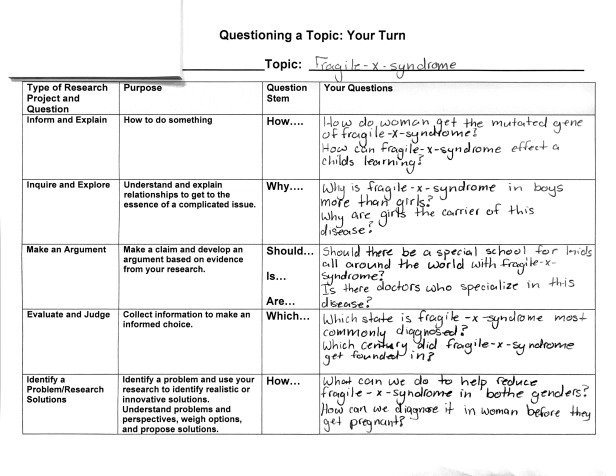 Questioning a Topic: Your Turn
Topic: Fragile-x-syndrome
Type of Research Project and Question
Purpose
Question Stem
Your Questions
Inform and Explain
How to do something
How....
How do woman get the mutated gene
of fragile-x-syndrome?
How can fragile-x-syndrome effect a
childs learning?
Inquire and Explore
Understand and explain
relationships to get to the
essence of a complicated issue.
Why...
Why is fragile-x-syndrome in boys
more than girls?
Why are girls the carrier of this
disease?
Make an Argument
Make a claim and develop an
argument based on evidence
from your research.
Should...
Is...
Are...
Should there be a special school for kids
all around the world with fragile-x-
syndrome?
Is there doctors who specialize in this
disease?
Evaluate and Judge
Collect information to make an
informed choice.
Which...
Which state is fragile-x-syndrome most
commonly diagnosed?
Which century did fragile-x-syndrome
get founded in?
Identify a
Problem/Research
Solutions
Identify a problem and use your
research to identify realistic or
innovative solutions.
Understand problems and
perspectives, weigh options,
and propose solutions.
How...
What can we do to help reduce
fragile-x-syndrome in bothe genders?
How can we diagnose it in woman before they
get pregnant?